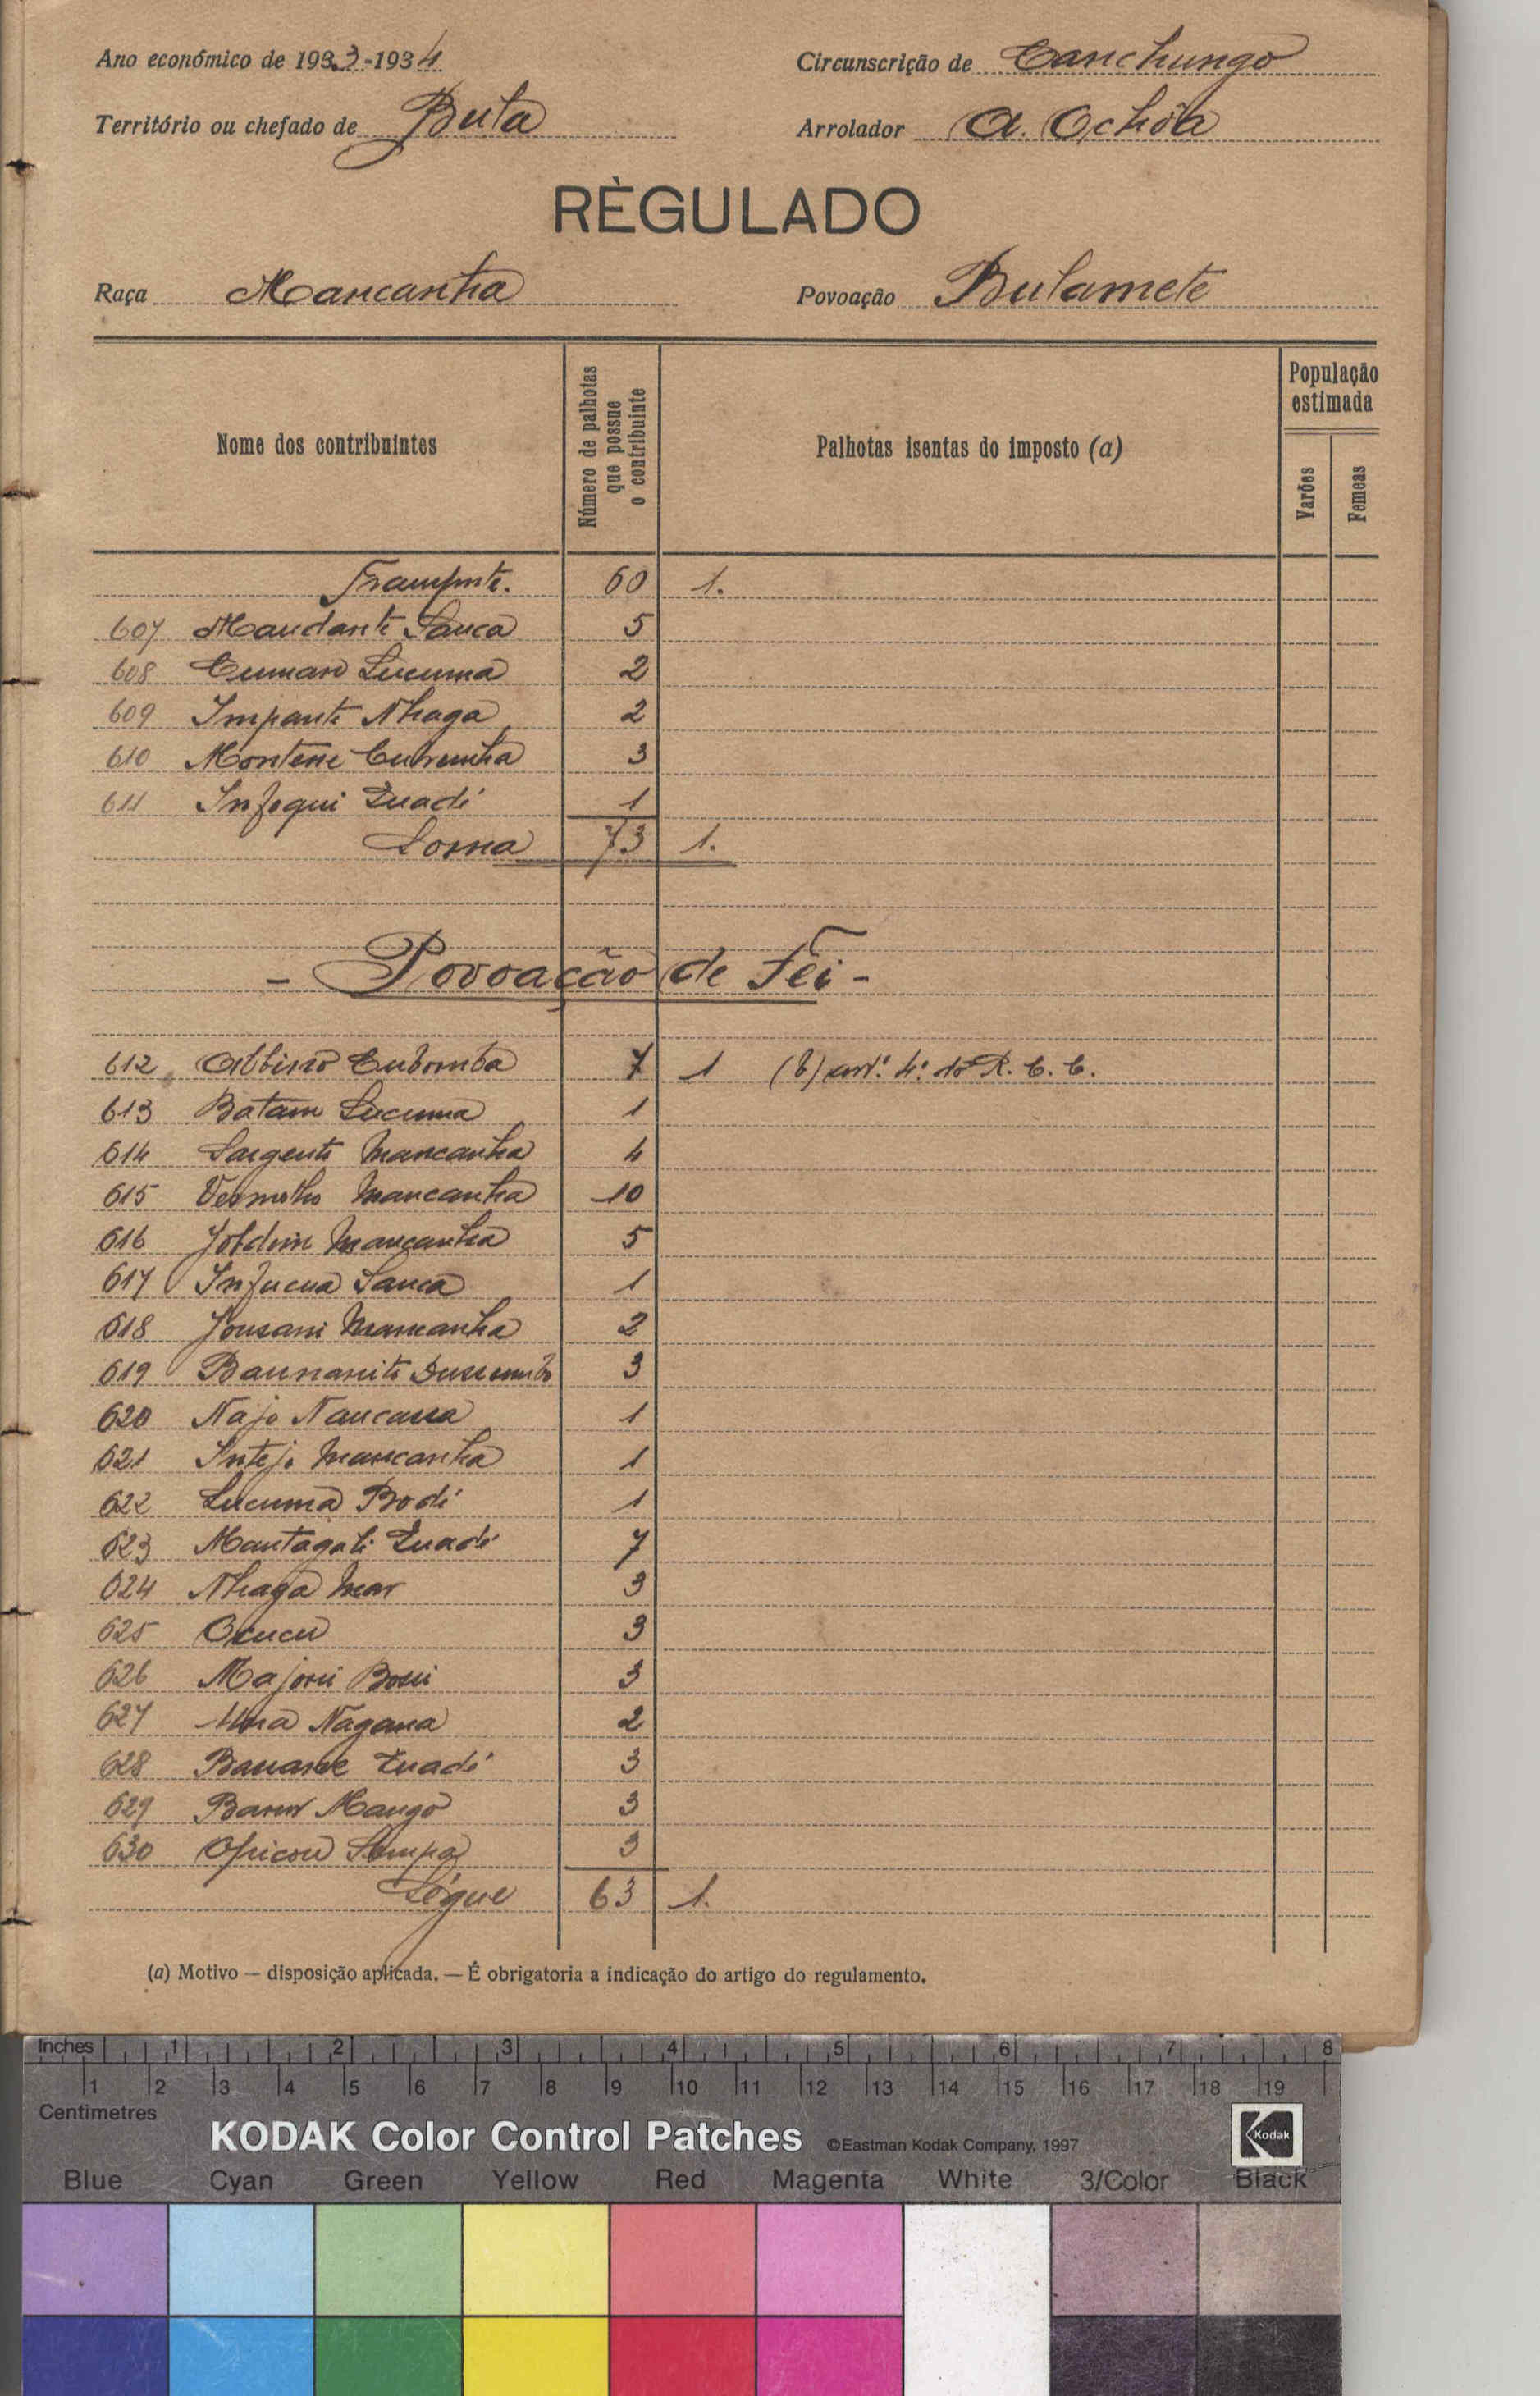 Ano económico de 1933-1934
Circunscrição de Canchungo
Território ou chefado de Bula
Arrolador A. Ochôa
RÈGULADO
Raça Mancanha
Povoação Bulamete
Nome dos contribuintes
Número de palhotas que possue o contribuinte
Palhotas isentas do imposto (a)
População estimada
Varões
Femeas
Transporte. 60 1.
607 Maudante Sanca 5
608 Lucuma 2
609 Impante Nhaga 2
610 3
611 Infoqui Quadé 1
Soma 73 1.
- Povoação de Fei -
612 Albino Cubomba 7 1 (b) art.º 4.º do R. C. C.
613 Batam Lucuma 1
614 Sargento Mancanha 4
615 Vermelho Mancanha 10
616 Mancanha 5
617 Infucua Sanca 1
618 Mancanha 2
619 3
620 Najo 1
621 Intejo Mancanha 1
622 Lucuma Bodé 1
623 Mantagali Quadé 7
624 Nhaga Mar 3
625 Ocucu 3
626 3
627 2
628 Quadé 3
629 Mango 3
630 3
Ségue 63 1.
(a) Motivo — disposição aplicada. — É obrigatoria a indicação do artigo do regulamento.
Inches 1 2 3 4 5 6 7 8
1 2 3 4 5 6 7 8 9 10 11 12 13 14 15 16 17 18 19
Centimetres
KODAK Color Control Patches ©Eastman Kodak Company, 1997 Kodak
Blue Cyan Green Yellow Red Magenta White 3/Color Black